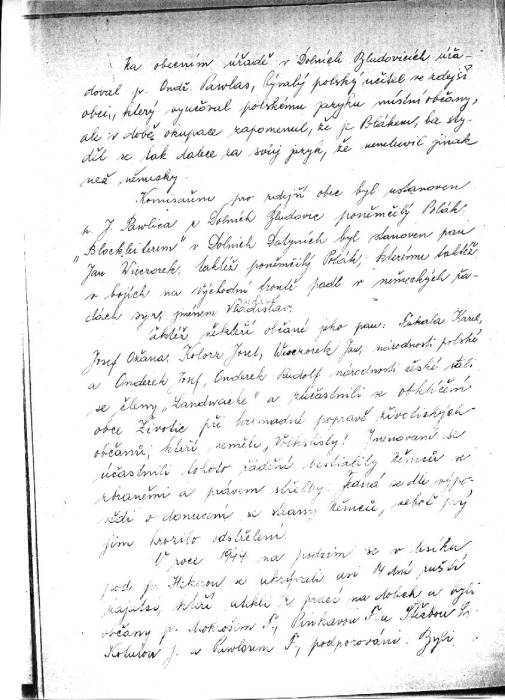 Na obecním úřadě v Dolních Bludovicích úřa-
doval p. Ondř. Pawlas, bývalý polský učitel ve zdejší
obci, který vyučoval polskému jazyku místní občany,
ale v době okupace zapomenul, že je Polákem, ba sty-
děl se tak dalece za svůj jazyk, že nemluvil jinak
než německy.
Komisařem pro zdejší obec byl ustanoven
p. J. Pawlica z Dolních Bludovic poněmčilý Polák.
"Blockleiterem" v Dolních Datyních byl stanoven pan
Jan Wieczorek, taktéž poněmčilý Polák, kterému taktéž
v bojích na východní frontě padl v německých řa-
dách syn, jménem Vladislav.
Taktéž někteří občané jako pan: Fukala Karel,
Josef Ožana, Kolorz Josef, Wieczorek Jan, národnosti polské
a Onderek Josef, Onderek Rudolf národnosti české stali
se členy "Landwache" a zúčastnili se obklíčení
obce Životic při hromadné popravě životických
občanů, kteří neměli "Volkslisty". Jmenovaní se
účastnili tohoto řádění bestiality Němců se
zbraněmi a právem střelby. Jedná se dle výpo-
vědí o donucení ze strany Němců, neboť prý
jim hrozilo odstřelení.
V roce 1944 na podzim se v lesíku
pod p. ukrývali asi 14 dní ruští
zajatci, kteří utekli z prací na dolech a byli
občany p. Mokrošem F., Pinkavou F. a
J. a Pawlasem F., podporováni. Byli